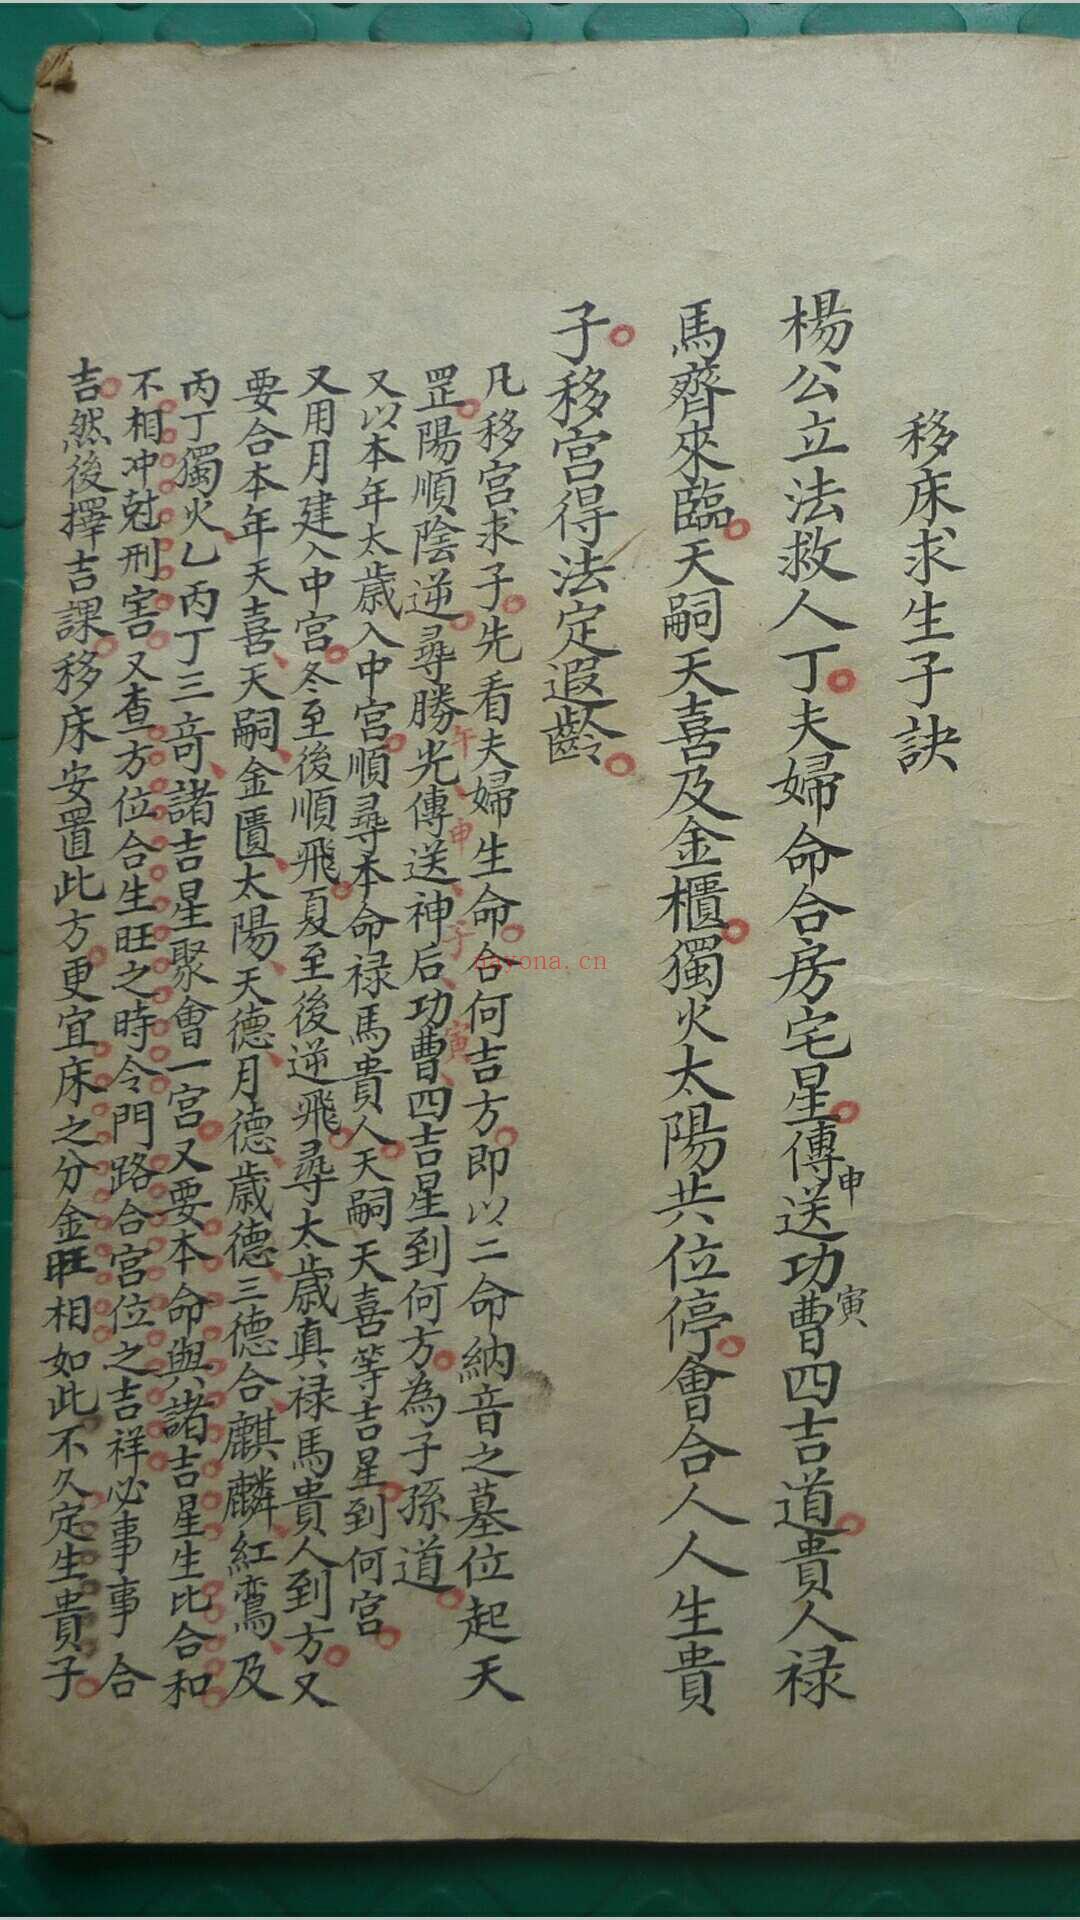 移床求生子訣
楊公立法救人丁。夫婦命合房宅星。傳送申功曹寅四吉道。貴人禄
馬齊來臨。天嗣天喜及金櫃。獨火太陽共位停。會合人人生貴
子。移宮得法定遐齡。
凡移宮求子。先看夫婦生命。合何吉方。即以二命納音之墓位起天
罡。陽順陰逆。尋勝光午、傳送申、神后子、功曹寅、四吉星到何方。為子孫道。
又以本年太歲入中宮。順尋本命禄馬貴人。天嗣天喜等吉星。到何宮。
又用月建入中宮。冬至後順飛。夏至後逆飛。尋太歲真禄馬貴人到方。又
要合本年天喜、天嗣、金匱、太陽、天德、月德、歲德、三德合、麒麟、紅鸞、及
丙丁獨火、乙丙丁三竒、諸吉星聚會一宮。又要本命與諸吉星生比合和
不相冲尅刑害。又查方位合生旺之時令。門路合宮位之吉祥。必事事合
吉。然後擇吉課。移床安置此方。更宜床之分金旺相。如此不久定生貴子。
nayona.cn